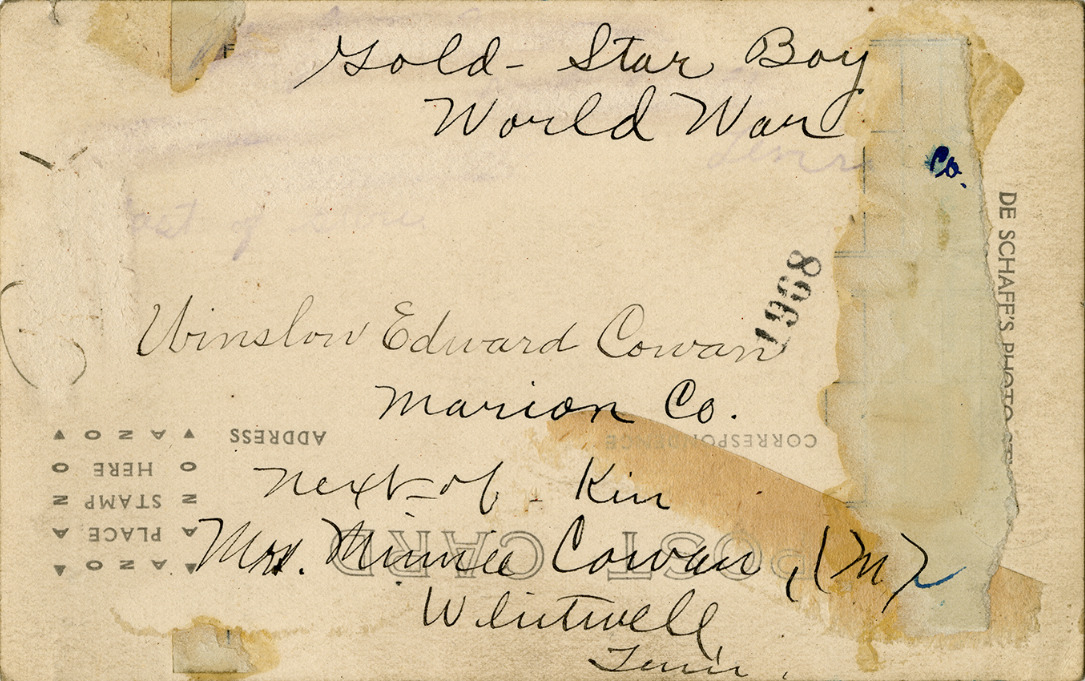 Gold - Star Boy
World War
Co.
1968
Winslow Edward Cowan
Marion Co.
ADDRESS
CORRESPONDENCE
AZO
PLACE
STAMP
HERE
AZO
POST CARD
next-of - Kin
Mrs. Minnie Cowan, (M)
Whitwell
Tenn.
DE SCHAFF'S PHOTO